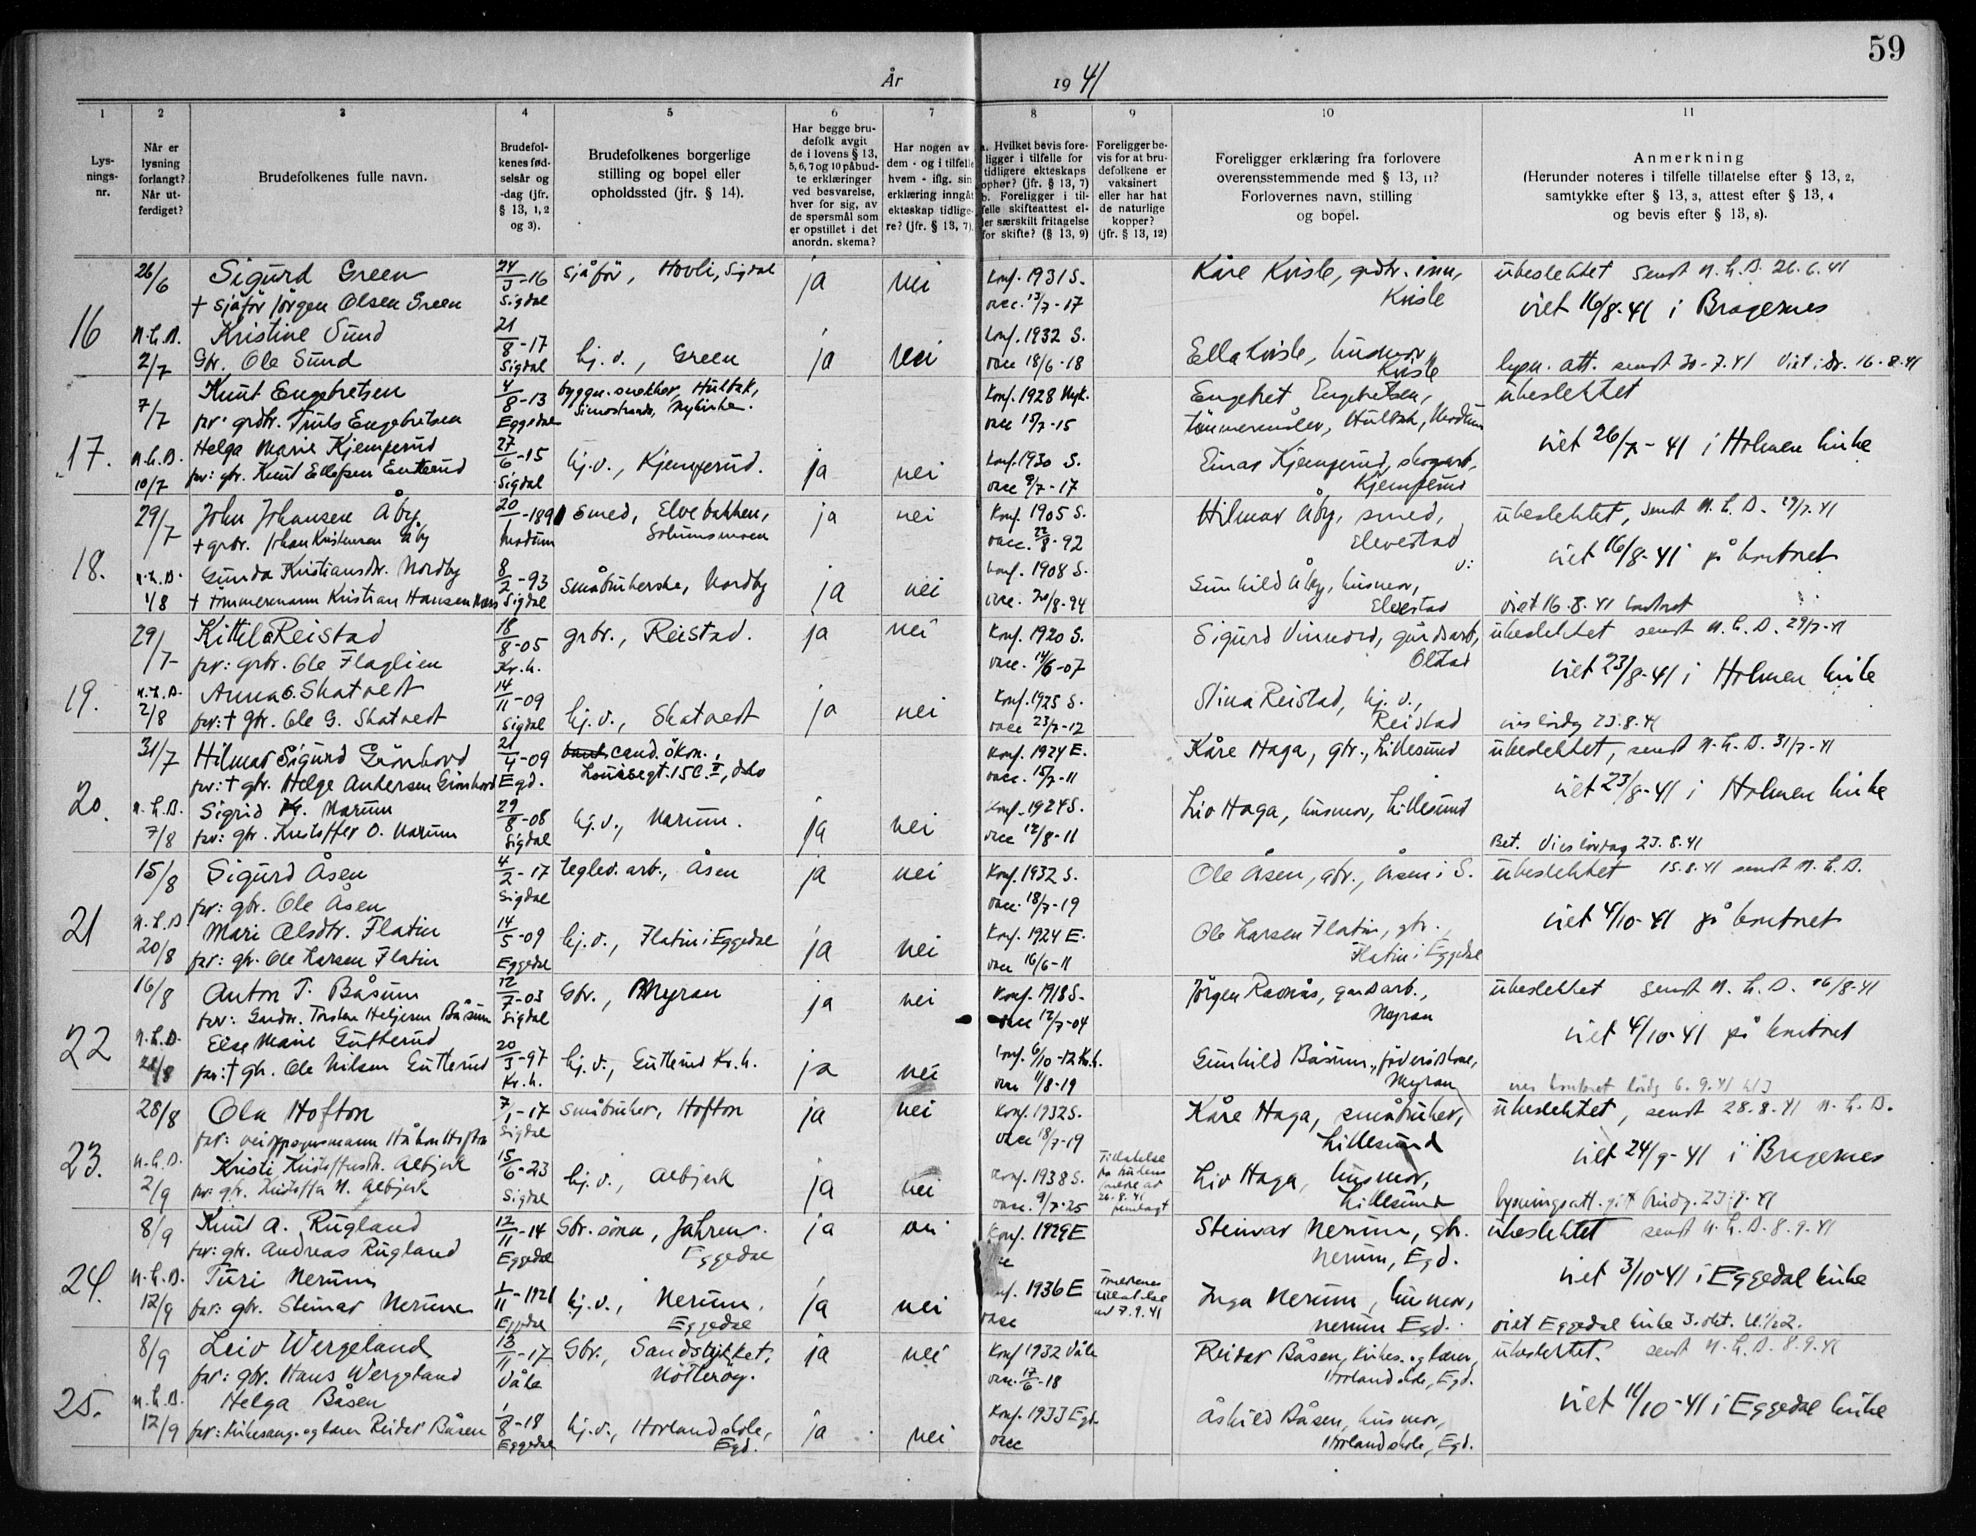 59
År 1941
1 2 3 4 5 6 7 8 9 10 11
Lys-
nings-
nr.
Når er
lysning
forlangt?
Når ut-
ferdiget?
Brudefolkenes fulle navn.
Brudefol-
kenes fød-
selsår og
-dag (jfr.
§ 13, 1, 2
og 3).
Brudefolkenes borgerlige
stilling og bopel eller
opholdssted (jfr. § 14).
Har begge bru-
defolk avgit
de i lovens § 13,
5, 6, 7 og 10 påbud-
te erklæringer
ved besvarelse,
hver for sig, av
de spørsmål som
er opstillet i det
anordn. skema?
Har nogen av
dem - og i tilfelle
hvem - iflg. sin
erklæring inngåt
ekteskap tidlige-
re? (jfr. § 13, 7).
a. Hvilket bevis fore-
ligger i tilfelle for
tidligere ekteskaps
ophør? (jfr. § 13, 7)
b. Foreligger i til-
felle skifteattest el-
ler særskilt fritagelse
for skifte? (§ 13, 9)
Foreligger be-
vis for at bru-
defolkene er
vaksinert
eller har hat
de naturlige
kopper?
(jfr. § 13, 12)
Foreligger erklæring fra forlovere
overensstemmende med § 13, 11?
Forlovernes navn, stilling
og bopel.
Anmerkning
(Herunder noteres i tilfelle tillatelse efter § 13, 2,
samtykke efter § 13, 3, attest efter § 13, 4
og bevis efter § 13, 8).
16
26/6 Sigurd Green 24/3-16 sjåför, Hovli, Sigdal ja nei Konf. 1931 S. Kåre Kvisle, ubeslektet sendt N.L.B. 26.6.41
+ sjåför Jörgen Olsen Green Sigdal vacc. 12/7-17 Kvisle viet 16/8-41 i Bragernes
N.L.B. Kristine Sund 21/8-17 Konf. 1932 S.
2/7 Gbr. Ole Sund Sigdal hj.d., Green ja nei vacc 18/6-18 Ella Kvisle, husmor, Kvisle lysn. att. sendt 30-7.41 Viet i Dr. 16-8-41
17.
7/7 Knut Engebretsen 4/8-13 byggn. snekker, Hulbak, Konf. 1928 Nyk. Engebret Engebretsen, ubeslektet
far: grdbr. Truls Engebretsen Eggedal Simostranda, Nykirke. vacc 15/7-15 tömmermåler, Hulbak, Modum
N.L.B. Helga Marie Kjemperud 27/6-15 hj.d., Kjemperud. ja nei Konf. 1930 S. Einar Kjemperud, skogsarb., viet 26/7-41 i Holmen kirke
10/7 far: gbr. Knut Ellefsen Enterud Sigdal vacc 9/7-17 Kjemperud
18.
29/7 John Johansen Åby 20/-1891 smed, Elvebakken, ja nei Konf. 1905 S. Hilmar Åby, smed, ubeslektet, sendt N.L.B. 29/7.41
+ grbr. Johan Kristensen Åby Modum Solumsmoen vacc. 22/8-92 Elvestad viet 16/8-41 på kontoret
N.L.B. Gunda Kristiansdtr. Nordby 8/2-93 småbrukerske, Nordby ja nei Konf. 1908 S. Gunhild Åby, husmor,
1/8 + tömmermann Kristian Hansen Sigdal vacc. 20/8-94 Elvestad viet 16.8.41 kontoret
19.
29/7 Kittel O Reistad 18/8-05 grbr., Reistad. ja nei Konf. 1920 S. Sigurd Vinnord, gårdsarb, ubeslektet sendt N.L.B. 29/7-41
far: grbr. Ole Flaglien Kr.h. vacc. 14/6-07 Olstad viet 23/8-41 i Holmen kirke
N.L.B. Anna O. Skatvedt 14/11-09 Konf. 1925 S. Stina Reistad, hj.d.,
2/8 far: + gbr. Ole G. Skatvedt Sigdal hj.d., Skatvedt ja nei vacc 23/7-12 Reistad vies lördag 23.8.41
20.
31/7 Hilmar Sigurd Grönhovd 21/4-09 cand. ökon., Konf. 1924 E. Kåre Haga, gbr., Lillesund ubeslektet, sendt N.L.B. 31/7-41
far: + gbr. Helge Andersen Grönhovd Egd. Louisesgt. 15 C. II, Oslo vacc. 15/7-11 viet 23/8-41 i Holmen kirke
N.L.B. Sigrid Kr. Narum 29/8-08 hj.d., Narum. ja nei Konf. 1924 S. Liv Haga, husmor, Lillesund
7/8 far: gbr. Kristoffer O. Narum Sigdal vacc 12/8-11 Bet. Vies lördag 23.8.41
21
15/8 Sigurd Åsen 4/2-17 teglv. arb., Åsen ja nei Konf. 1932 S. Ole Åsen, gbr., Åsen i S. ubeslektet 15.8.41 sendt N.L.B.
far: gbr. Ole Åsen Sigdal vacc. 18/7-19 viet 4/10-41 på kontoret
N.L.B Mari Olsdtr. Flatin 14/5-09 hj.d., Flatin i Eggedal ja nei Konf. 1924 E. Ole Larsen Flatin, gbr.,
20/8 far: gbr. Ole Larsen Flatin Eggedal vacc 16/6-11 Flatin i Eggedal
22
16/8 Anton T. Båsum 12/7-03 Gbr., Myran ja nei Konf. 1918 S. Jörgen Ramnås, gårdsarb., ubeslektet sendt N.L.B. 16/8-41
far: Gardbr. Torsten Helgesen Båsum Sigdal vacc 12/7-04 Myran viet 6/10-41 på kontoret
N.L.B. Else Marie Gutterud 20/3-97 hj.d., Gutterud Kr.h. ja nei Konf. 6/10-12 Kr.h. Gunhild Båsum,
21/8 far: + gbr. Ole Nilsen Gutterud Kr.h. vacc 11/8-19 Myran vies kontoret lördg 6.9.41
23.
28/8 Ola Hofton 7/1-17 småbruker, Hofton ja nei Konf. 1932 S. Kåre Haga, småbruker, ubeslektet, sendt 28.8.41 N.L.B.
far: veioppsynsmann Håkon Hofton Sigdal vacc 18/7-19 Lillesund viet 24/9-41 i Bragernes
N.L.B. Kristi Kristoffersdtr. Albjerk 15/6-23 hj.d., Albjerk ja nei Konf. 1938 S. Tillatelse fra brudens foreldre av 26.8.41 fremlagt Liv Haga, husmor,
2/9 far: gbr. Kristoffer N. Albjerk Sigdal vacc. 9/7-25 Lillesund lysningsatt. gitt
24.
8/9 Knut A. Rugland 12/11-14 Gbr. sönn, Jahren. ja nei Konf. 1929 E Steinar Nerum, gbr. ubeslektet sendt N.L.B. 8.9.41
far: gbr. Andreas Rugland Eggedal Eggedal Nerum, Egd. viet 3/10-41 i Eggedal kirke
N.L.B. Turi Nerum 1/11-1921 hj.d., Nerum, ja nei 1936 E Inga Nerum, husmor,
12/9 far: gbr. Steinar Nerum Eggedal Eggedal vacc Nerum Egd. viet Eggedal kirke 3. okt. kl. 1/2 2.
25.
8/9 Leiv Wergeland 13/11-17 Gbr., Sandstykket, ja nei Konf 1932 Våle Reidar Båsen, kirkes. og lærer, ubeslektet. sendt N.L.B. 8.9.41
far: gbr. Hans Wergeland Våle Nötteröy. vacc. 17/6-18 Horland skole, Egd.
N.L.B. Helga Båsen 1/8-18 hj.d., Horland skole, ja nei Konf. 1933 Egd. Åshild Båsen, husmor, viet 11/10-41 i Eggedal kirke
12/9 far: kirkesang. og lærer Reidar Båsen Eggedal Egd. vacc Horland skole, Egd.